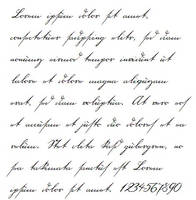 Lorem ipsum dolor sit amet,
consetetur sadipscing elitr, sed diam
nonumy eirmod tempor invidunt ut
labore et dolore magna aliquyam
erat, sed diam voluptua. At vero eos
et accusam et justo duo dolores et ea
rebum. Stet clita kasd gubergren, no
sea takimata sanctus est Lorem
ipsum dolor sit amet. 1234567890